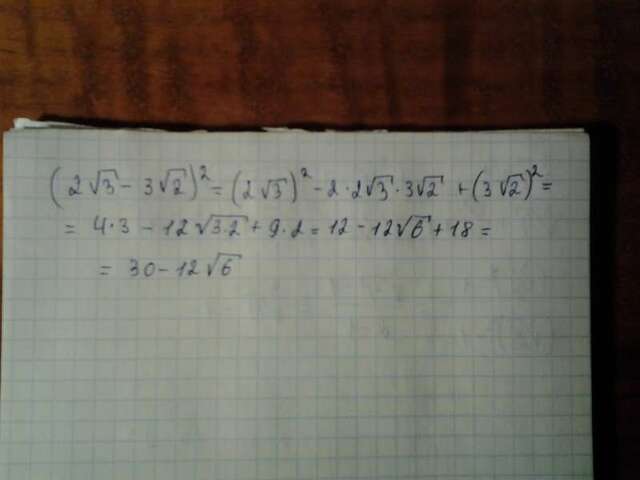 (2√3 - 3√2)² = (2√3)² - 2·2√3·3√2 + (3√2)² =
= 4·3 - 12√3·2 + 9·2 = 12 - 12√6 + 18 =
= 30 - 12√6